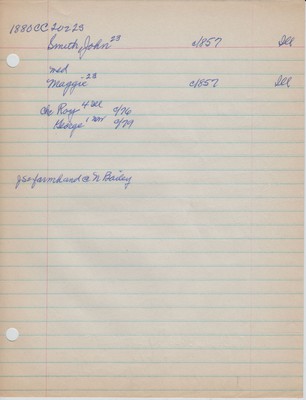 1880CC 20223
Smith, John 23 c1857 Ill
md
Maggie 23 c1857 Ill
Ch Roy 4 Ill c/76
George 1 c/79
JS = farmhand @ N Bailey